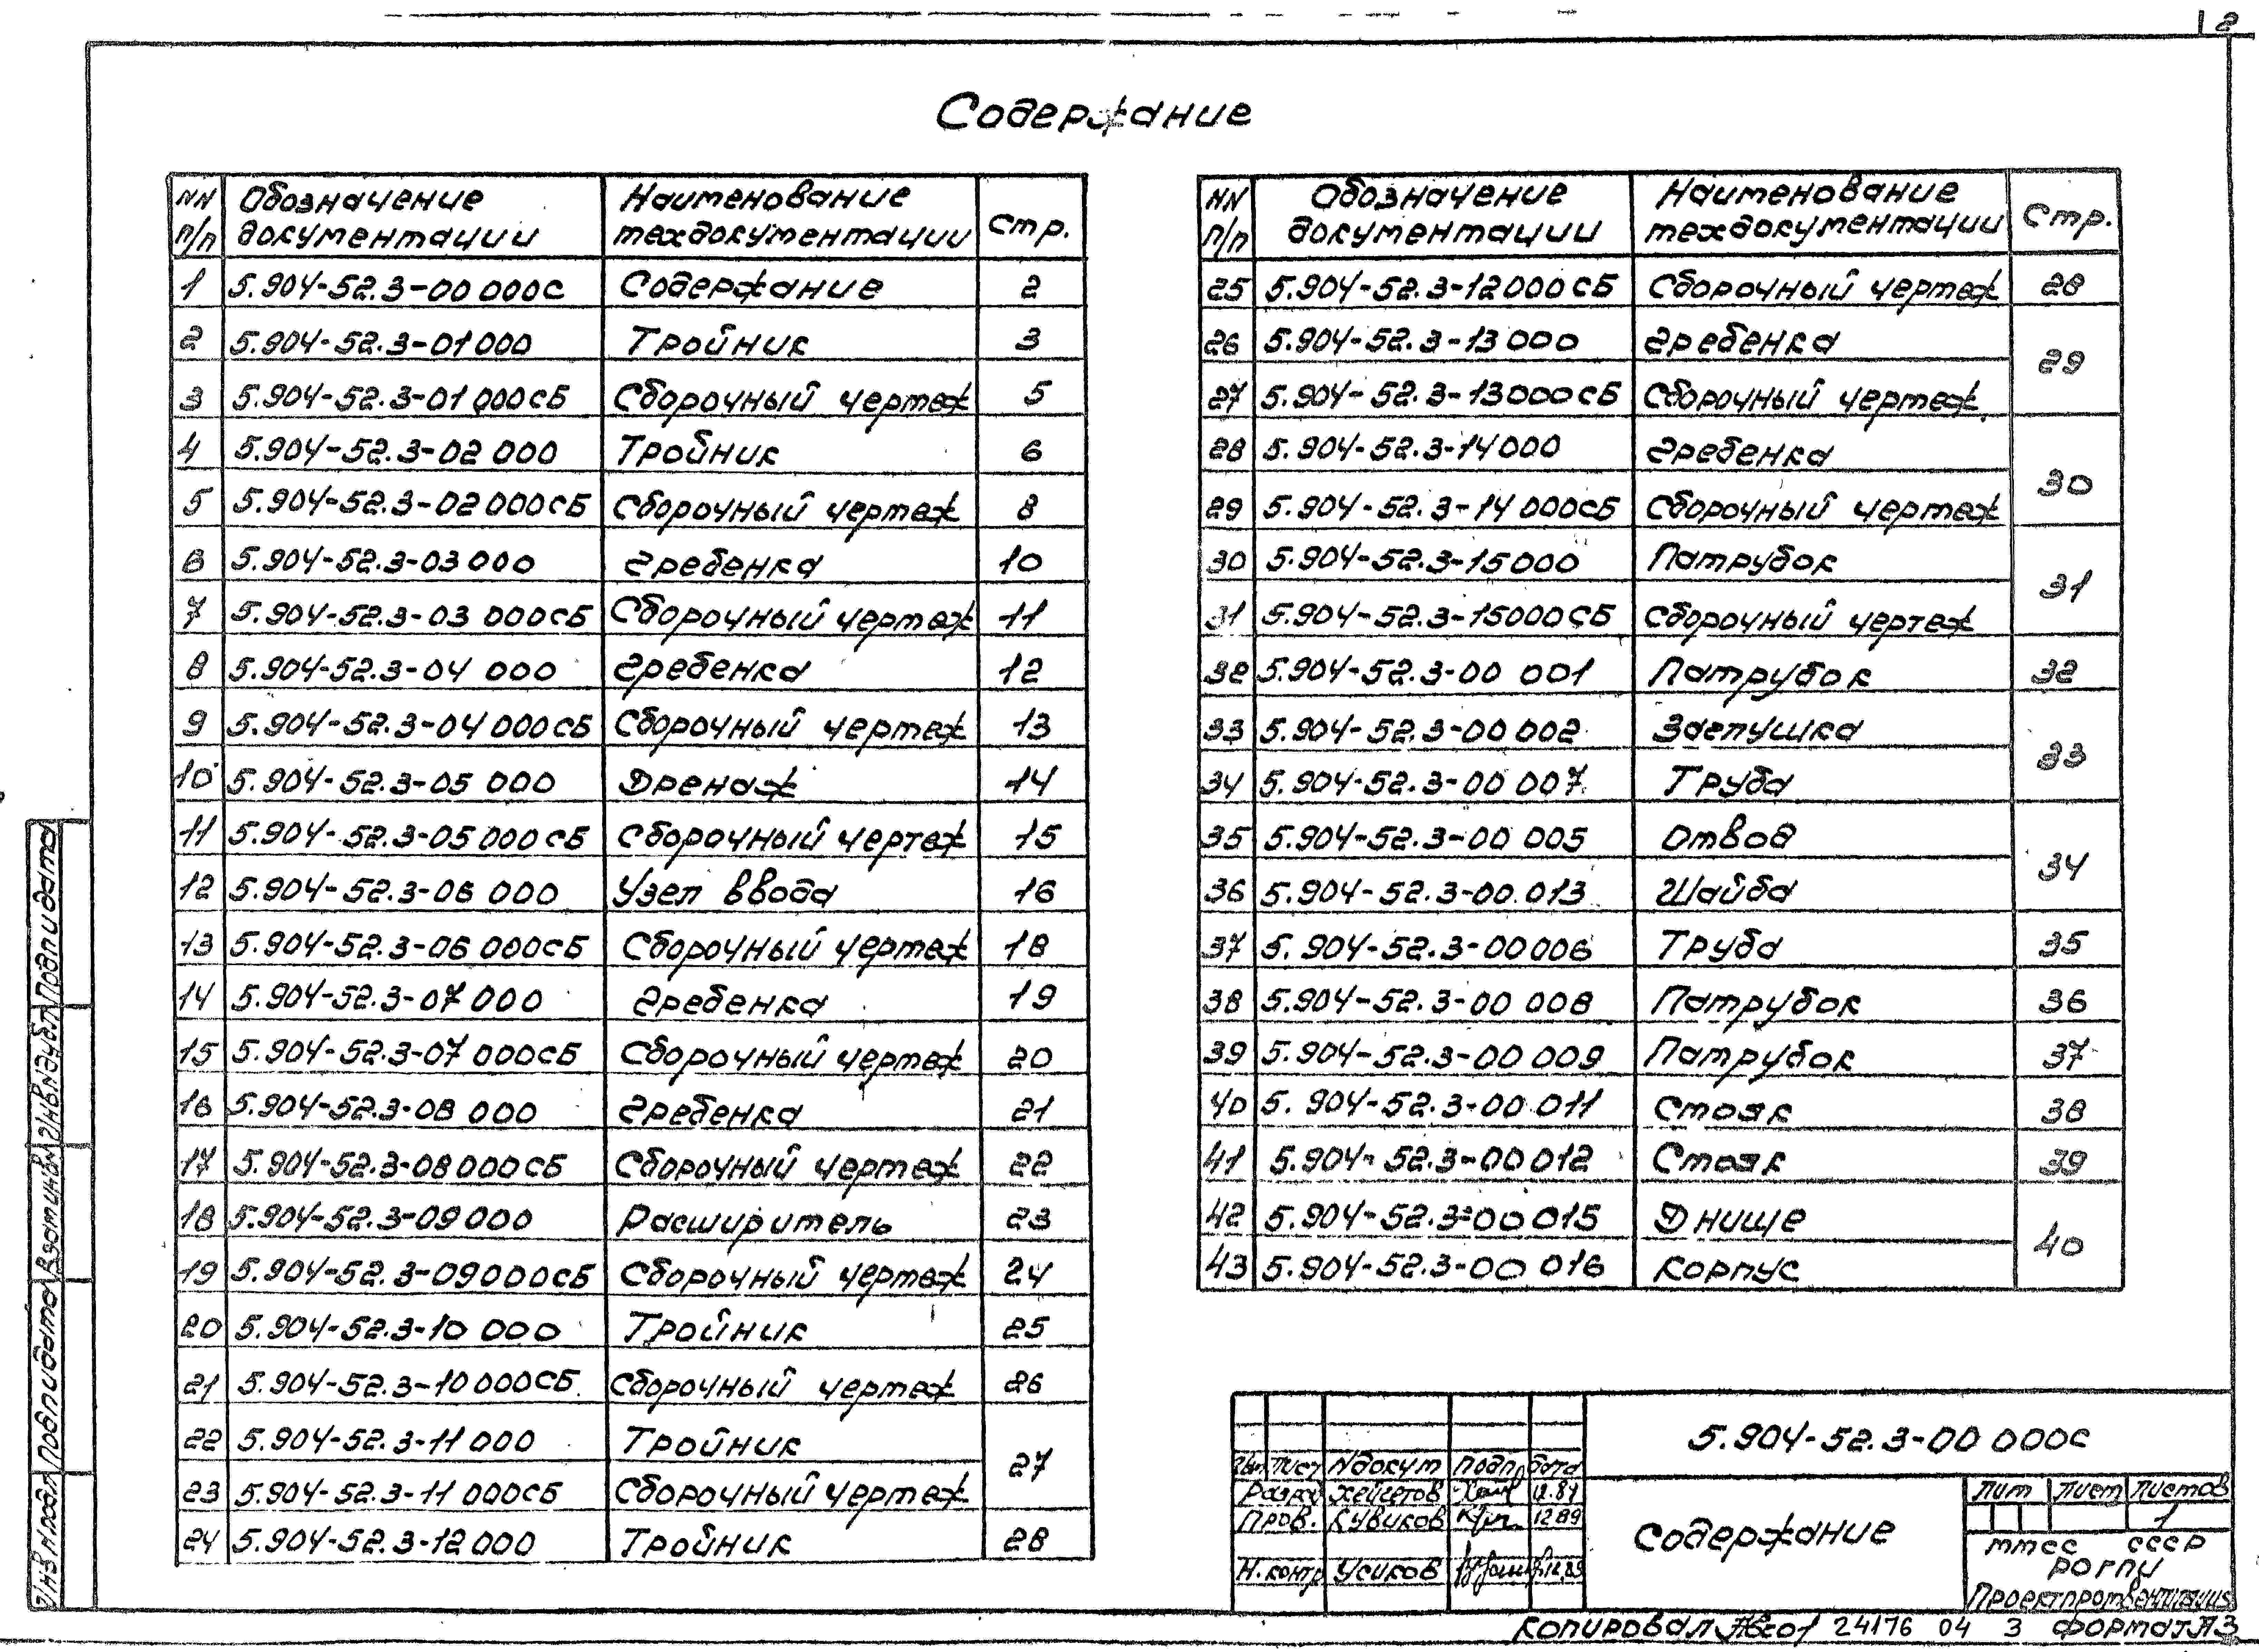 2
Содержание
NN п/п Обозначение документации Наименование техдокументации Стр.
1 5.904-52.3-00 000С Содержание 2
2 5.904-52.3-01 000 Тройник 3
3 5.904-52.3-01 000СБ Сборочный чертеж 5
4 5.904-52.3-02 000 Тройник 6
5 5.904-52.3-02 000СБ Сборочный чертеж 8
6 5.904-52.3-03 000 Гребенка 10
7 5.904-52.3-03 000СБ Сборочный чертеж 11
8 5.904-52.3-04 000 Гребенка 12
9 5.904-52.3-04 000СБ Сборочный чертеж 13
10 5.904-52.3-05 000 Дренаж 14
11 5.904-52.3-05 000СБ Сборочный чертеж 15
12 5.904-52.3-06 000 Узел ввода 16
13 5.904-52.3-06 000СБ Сборочный чертеж 18
14 5.904-52.3-07 000 Гребенка 19
15 5.904-52.3-07 000СБ Сборочный чертеж 20
16 5.904-52.3-08 000 Гребенка 21
17 5.904-52.3-08 000СБ Сборочный чертеж 22
18 5.904-52.3-09 000 Расширитель 23
19 5.904-52.3-09 000СБ Сборочный чертеж 24
20 5.904-52.3-10 000 Тройник 25
21 5.904-52.3-10 000СБ Сборочный чертеж 26
22 5.904-52.3-11 000 Тройник 27
23 5.904-52.3-11 000СБ Сборочный чертеж
24 5.904-52.3-12 000 Тройник 28
NN п/п Обозначение документации Наименование техдокументации Стр.
25 5.904-52.3-12 000СБ Сборочный чертеж 28
26 5.904-52.3-13 000 Гребенка 29
27 5.904-52.3-13 000СБ Сборочный чертеж
28 5.904-52.3-14 000 Гребенка 30
29 5.904-52.3-14 000СБ Сборочный чертеж
30 5.904-52.3-15 000 Патрубок 31
31 5.904-52.3-15 000СБ Сборочный чертеж
32 5.904-52.3-00 001 Патрубок 32
33 5.904-52.3-00 002 Заглушка 33
34 5.904-52.3-00 007 Труба
35 5.904-52.3-00 005 Отвод 34
36 5.904-52.3-00.013 Шайба
37 5.904-52.3-00 006 Труба 35
38 5.904-52.3-00 008 Патрубок 36
39 5.904-52.3-00 009 Патрубок 37
40 5.904-52.3-00 011 Стояк 38
41 5.904-52.3-00 012 Стояк 39
42 5.904-52.3-00 015 Днище 40
43 5.904-52.3-00 016 Корпус
Инв N подл Подп и дата Взам инв N Инв N дубл Подп и дата
5.904-52.3-00 000С
Изм Лист N докум Подп. Дата
Разр. 12.89
Пров. Кувиков 12.89
Н. контр Усиков 12.89
Содержание
Лит Лист Листов
1
ММСС СССР
РОГПИ
Проектпромвентиляция
Копировал 24176 04 3 Формат А3